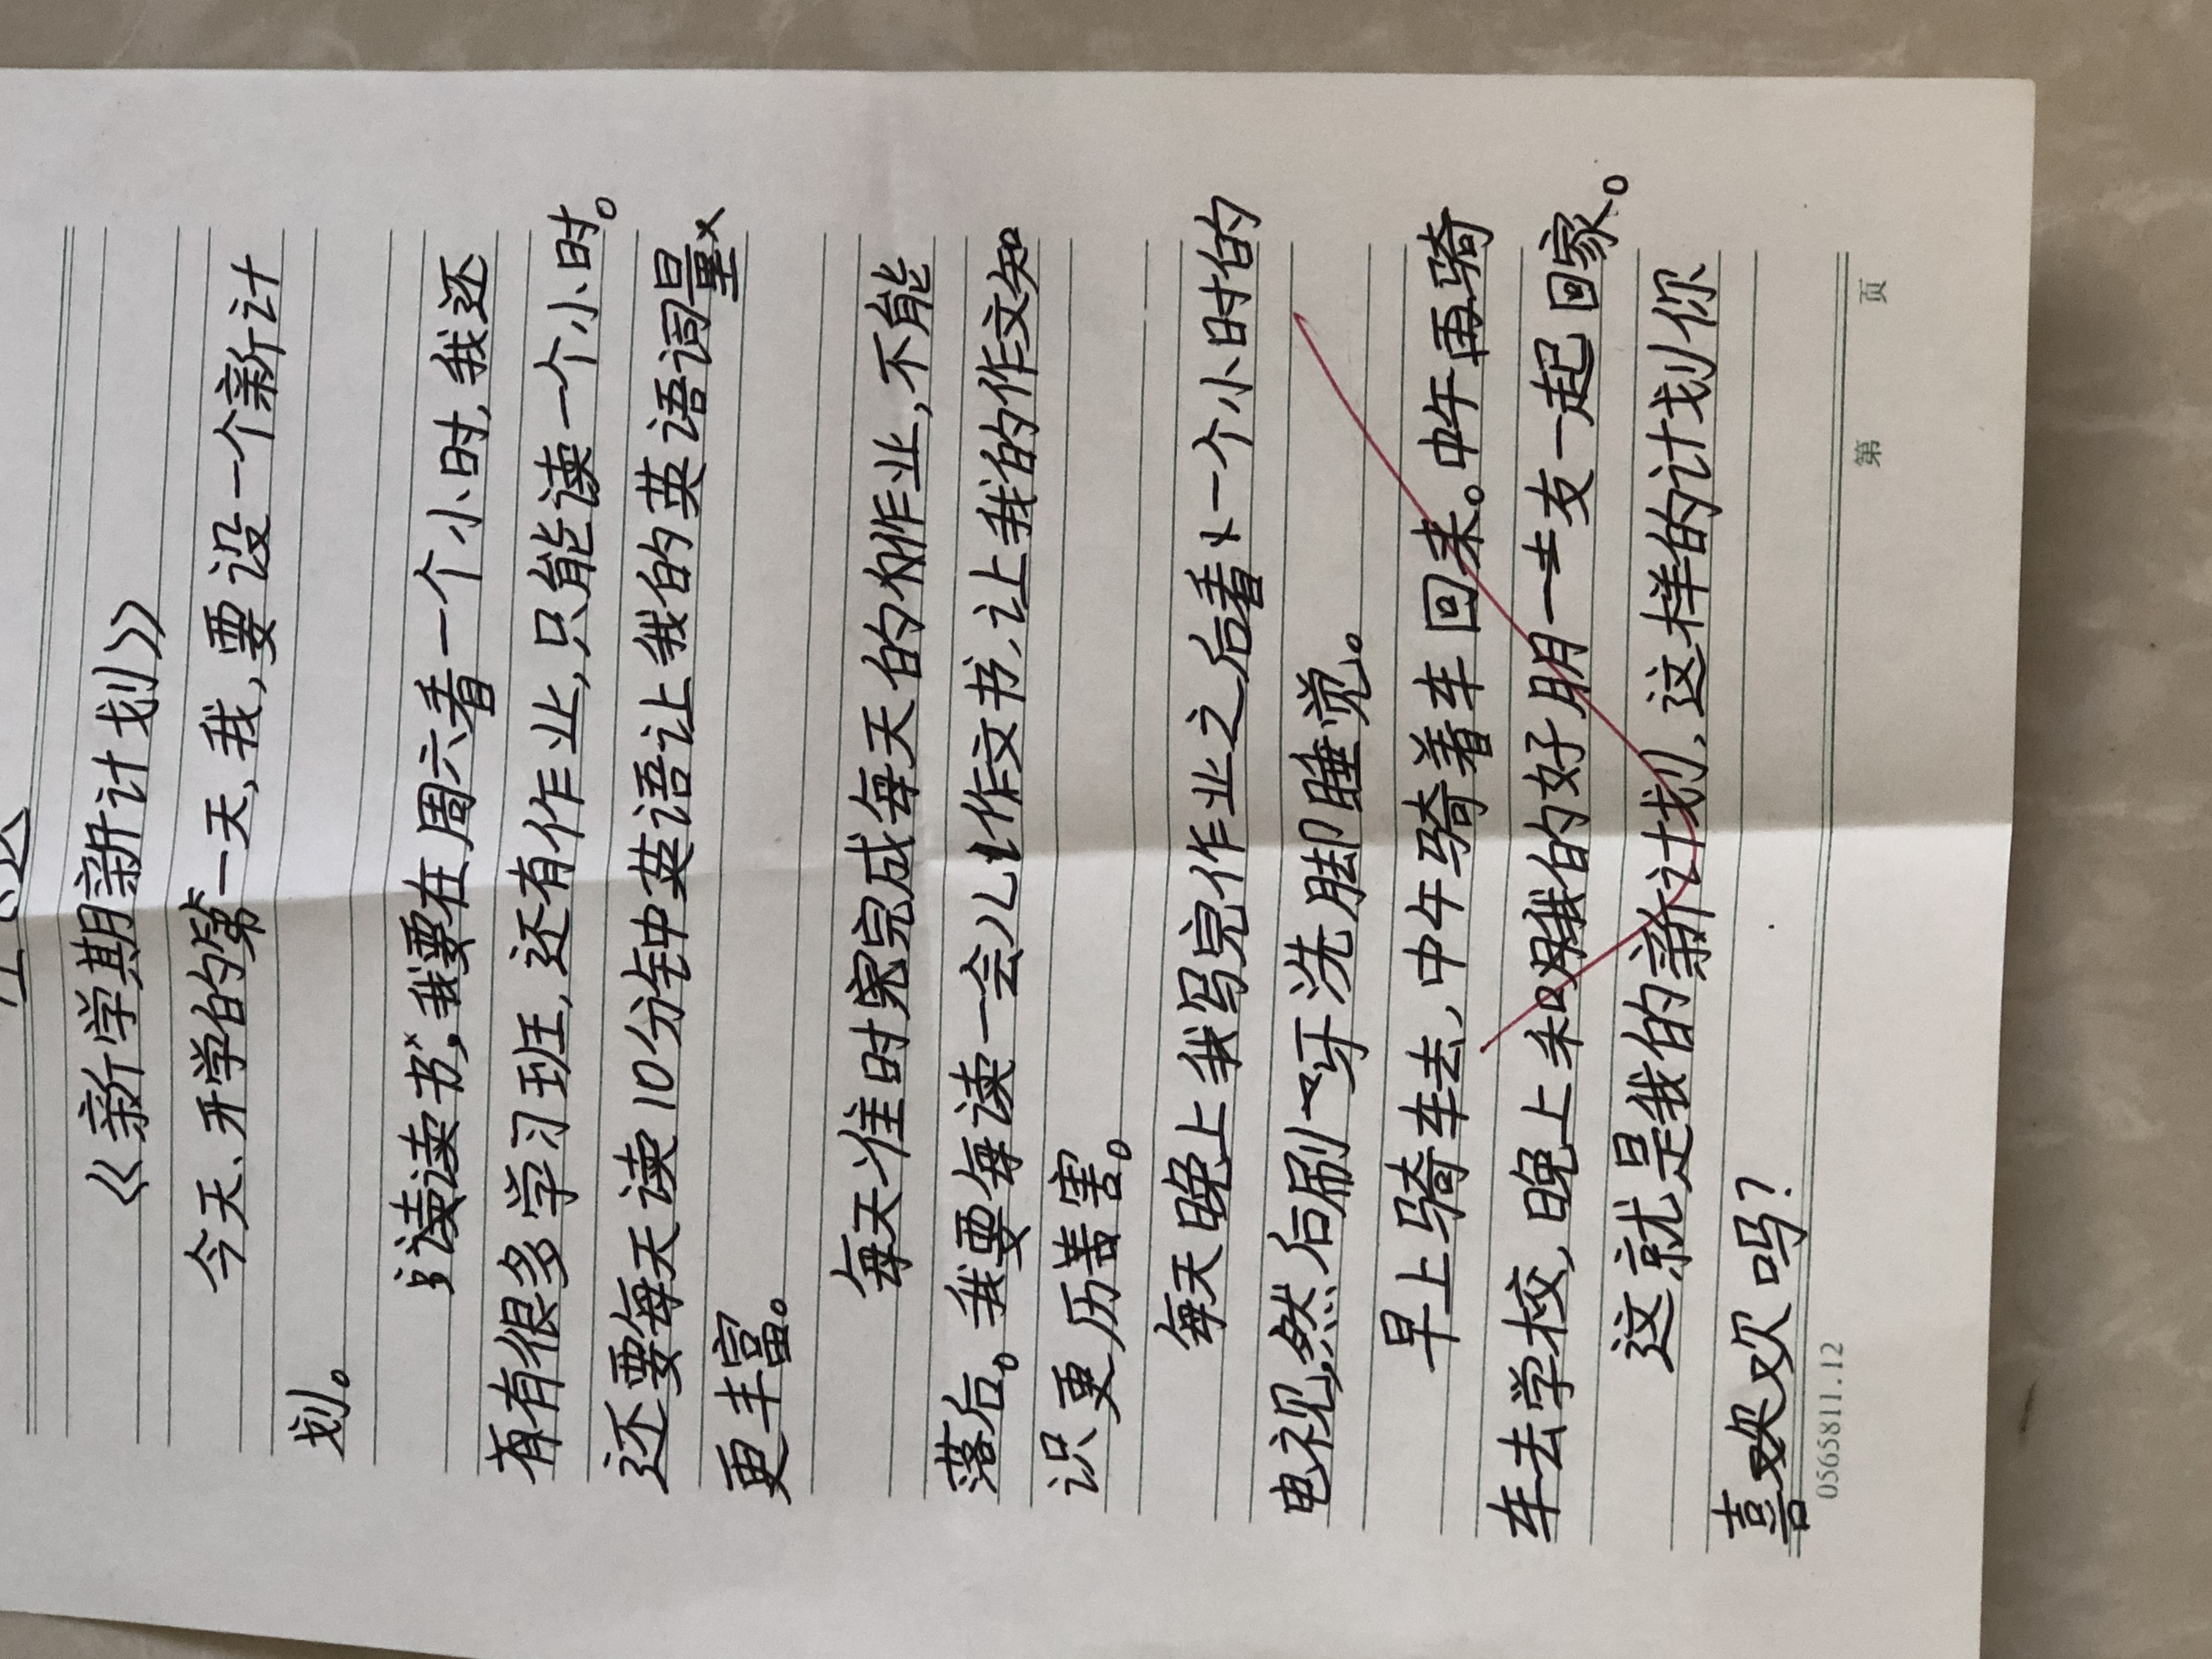 《新学期新计划》
今天、开学的第一天,我,要设一个新计
划。
读读书,我要在周六看一个小时,我还
有有很多学习班,还有作业,只能读一个小时。
还要每天读10分钟英语让我的英语词量
更丰富。
每天准时完成每天的作业,不能
落后。我要每读一会儿作文书,让我的作文知
识更历害。
每天晚上我写完作业之后看一个小时的
电视然后刷牙洗脚睡觉。
早上骑车去,中午骑着车回来。中午再骑
车去学校,晚上和我的好朋友一起回家。
这就是我的新计划,这样的计划你
喜欢吗?
0565811.12
第 页